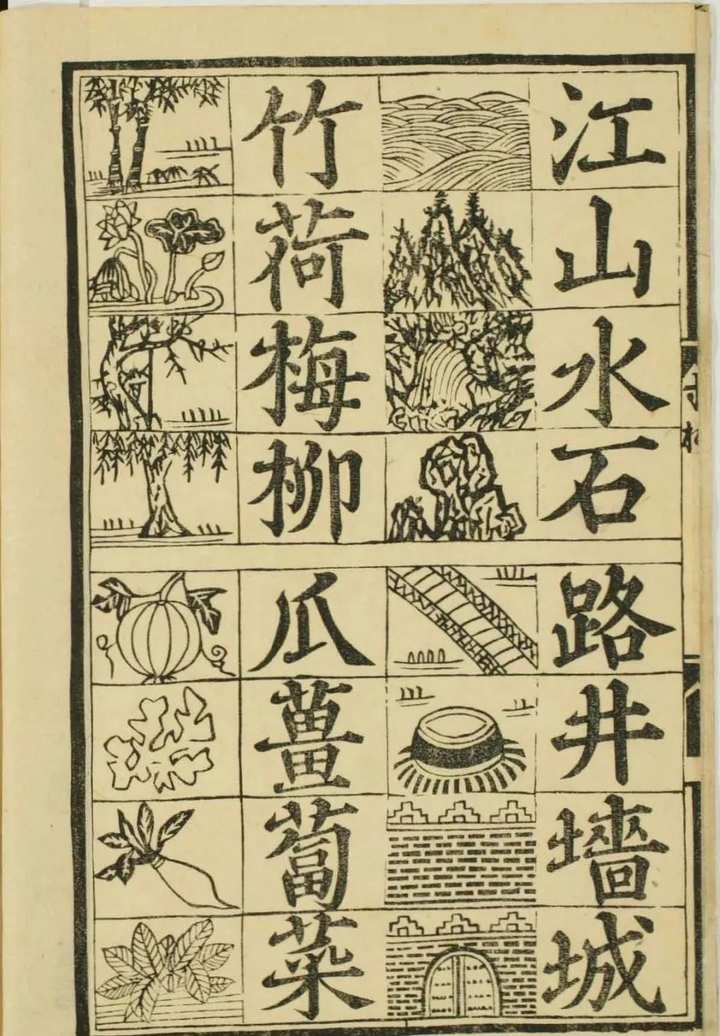 江山水石
竹荷梅柳
路井墻城
瓜薑蔔菜